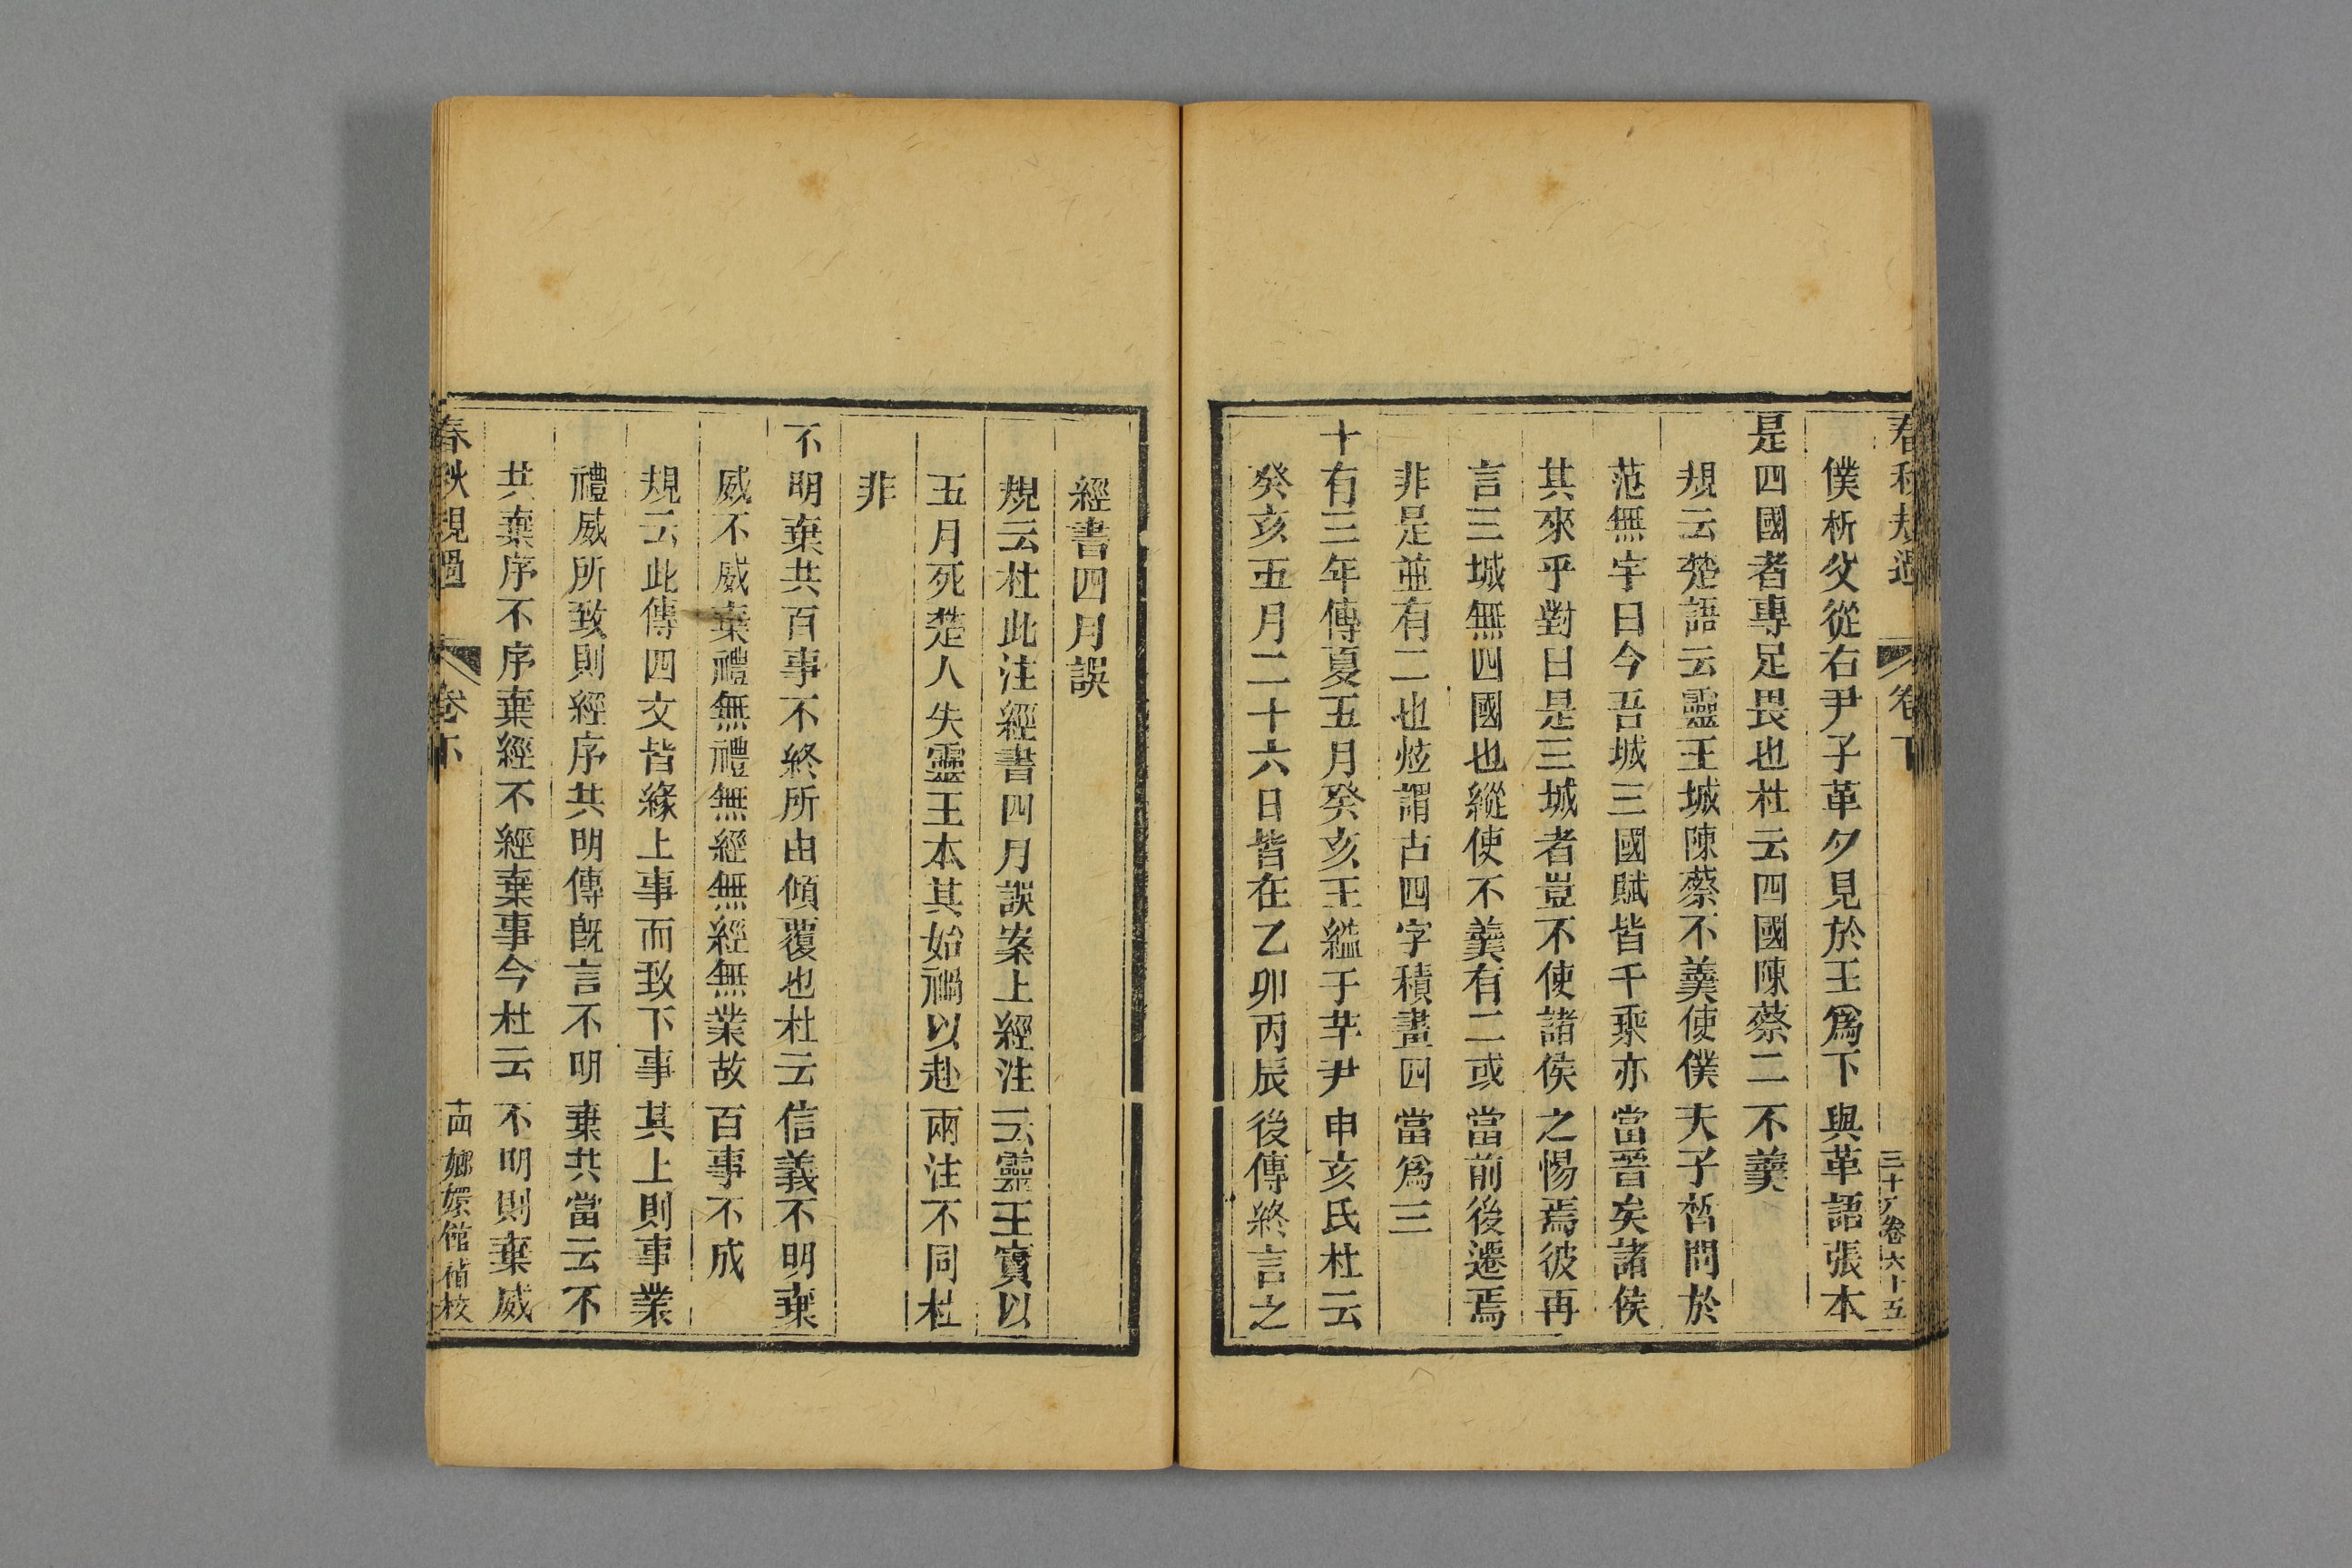 春秋規過 卷下 三十八卷六十五
僕析父從右尹子革夕見於王爲下與革語張本
是四國者專足畏也杜云四國陳蔡二不羹
規云楚語云靈王城陳蔡不羹使僕夫子晳問於
范無宇曰今吾城三國賦皆千乘亦當晉矣諸侯
其來乎對曰是三城者豈不使諸侯之惕焉彼再
言三城無四國也縱使不羹有二或當前後遷焉
非是並有二也炫謂古四字積畫四當爲三
十有三年傳夏五月癸亥王縊于芊尹申亥氏杜云
癸亥五月二十六日皆在乙卯丙辰後傳終言之
經書四月誤
規云杜此注經書四月誤案上經注云靈王實以
五月死楚人失靈王本其始禍以赴兩注不同杜
非
不明棄共百事不終所由傾覆也杜云信義不明棄
威不威棄禮無禮無經無經無業故百事不成
規云此傳四文皆緣上事而致下事其上則事業
禮威所致則經序共明傳旣言不明棄共當云不
共棄序不序棄經不經棄事今杜云不明則棄威
春秋規過 卷下 嫏嬛館補校